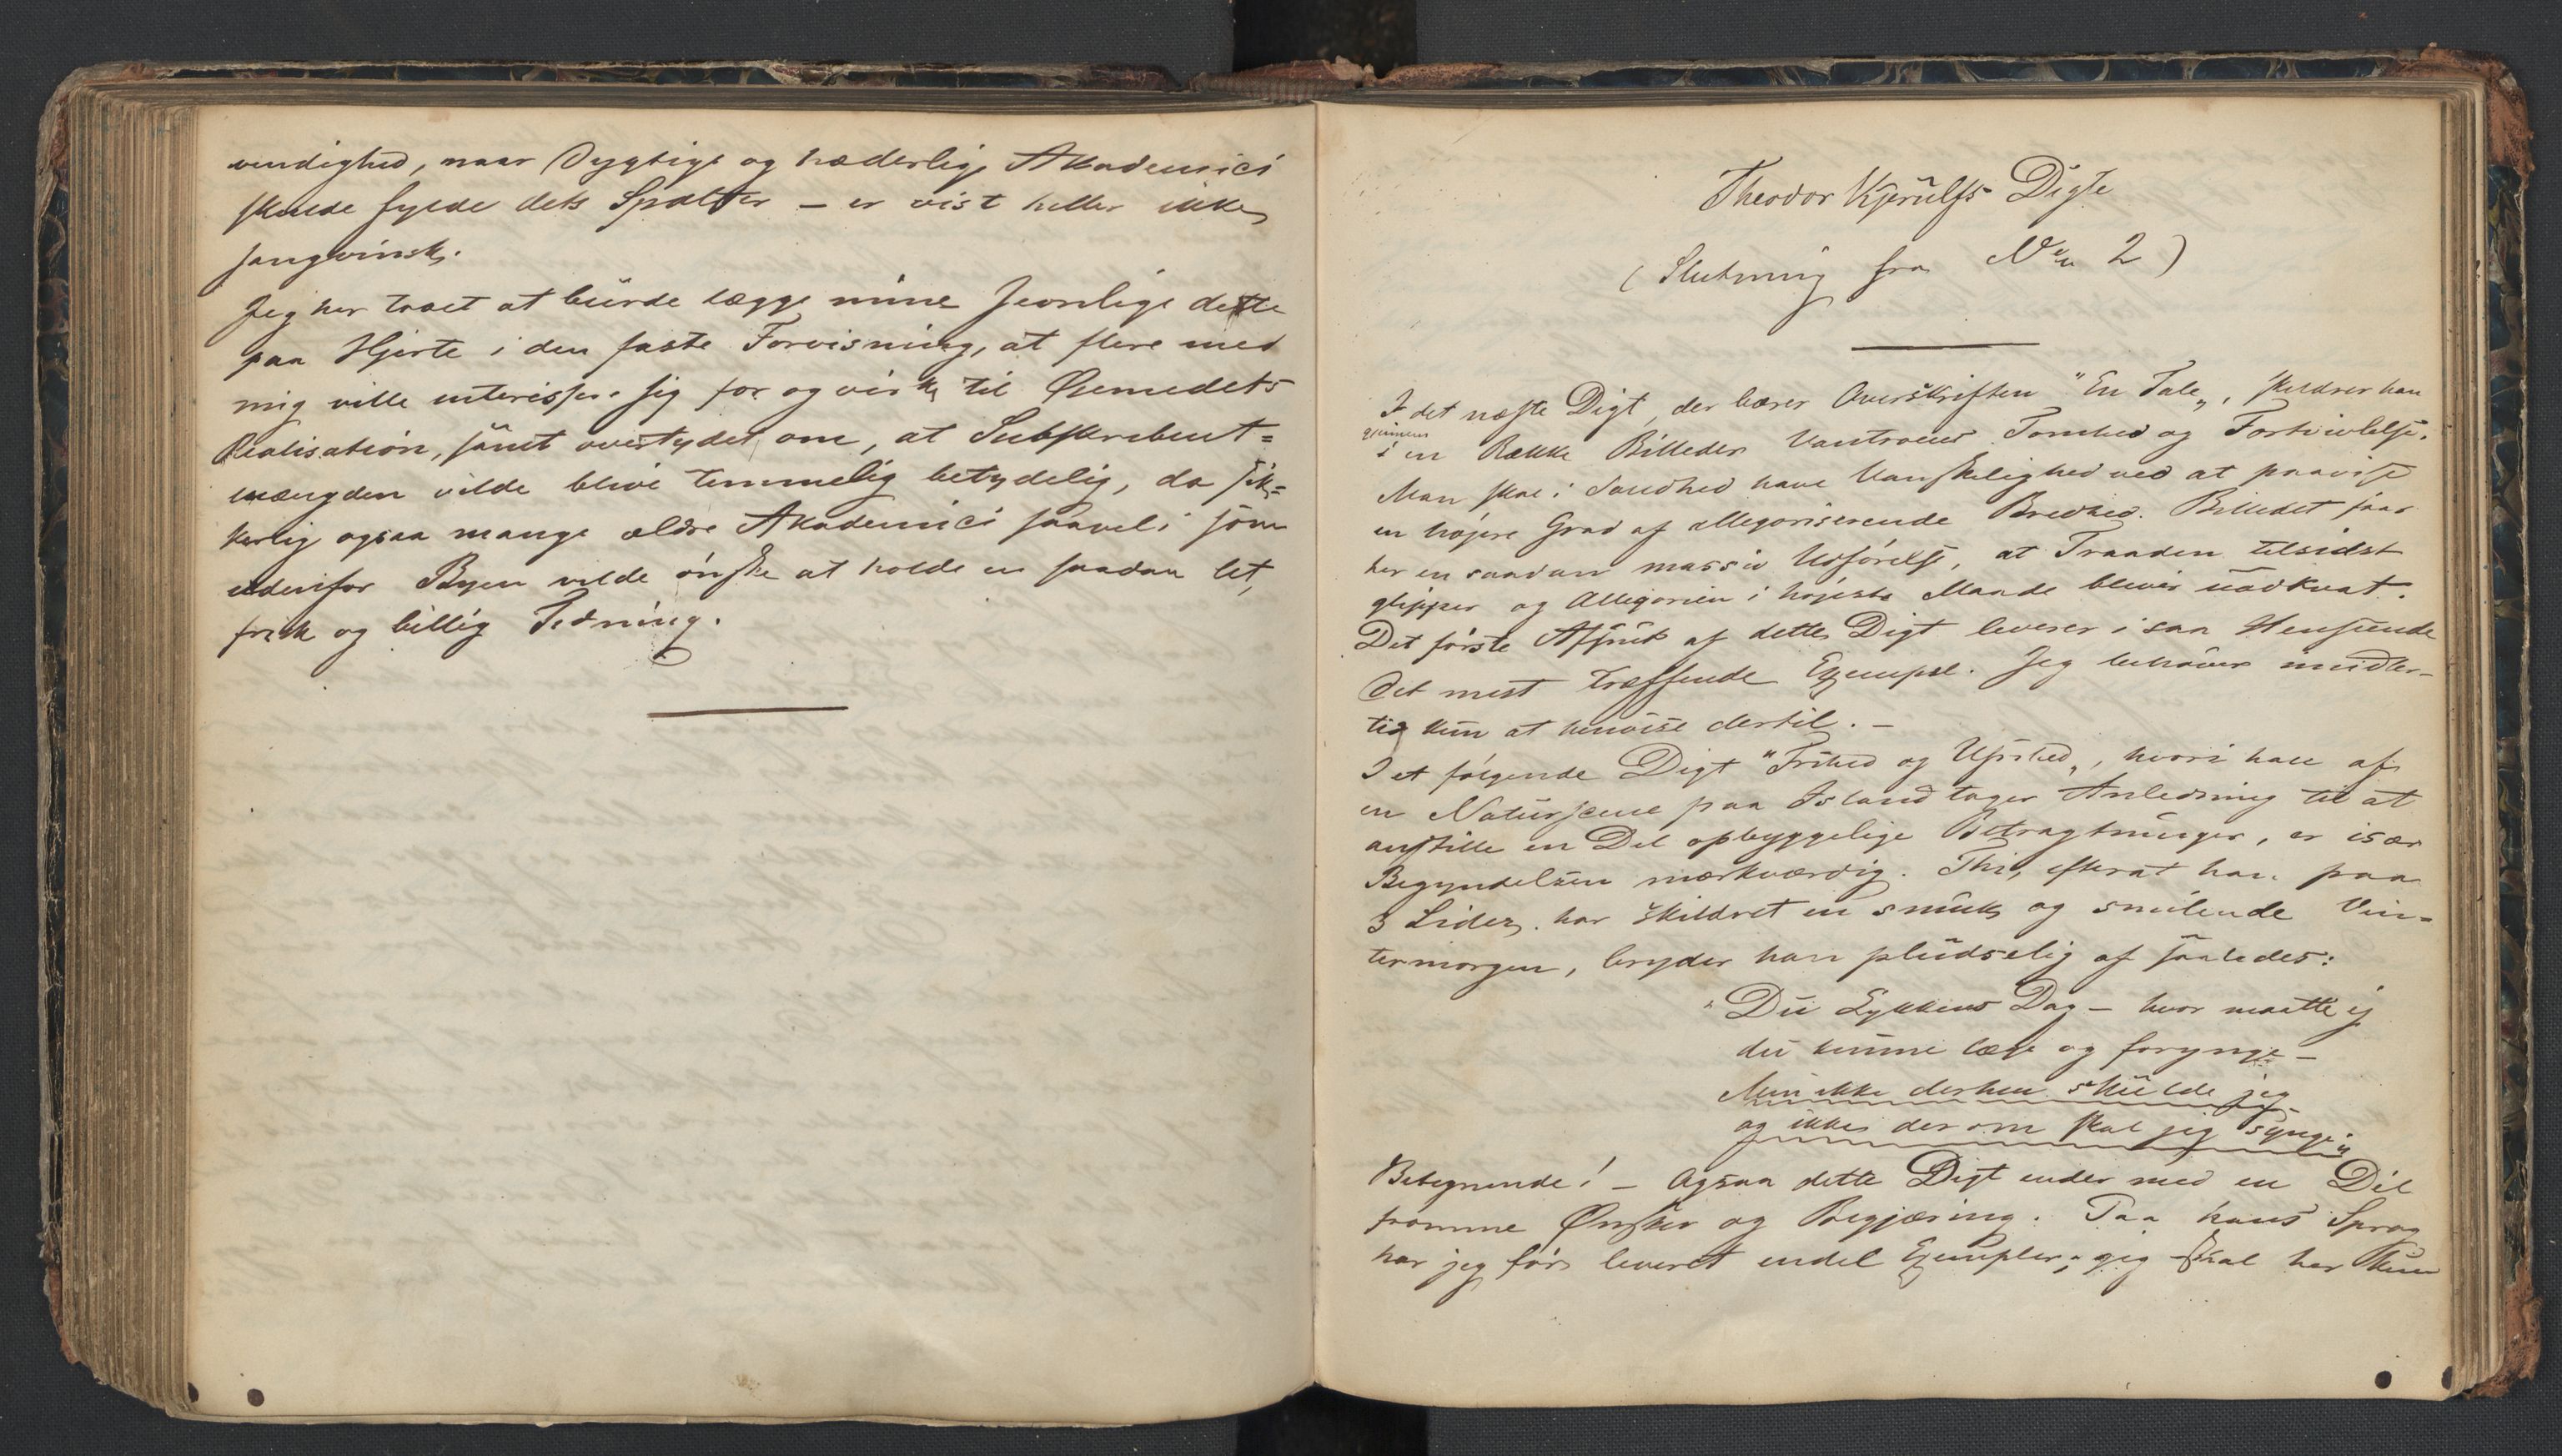 vendighed, naar Dygtige og hæderlige Akademici
skulde fylde dets Spalter – er vist heller ikke
sangvinsk.
Jeg har troet at burde lægge mine Jevnlige dette
paa Hjerte i den faste Forvisning, at flere med
mig ville interessere sig for og virke til Øiemedets
Realisation, samt overtydet om, at Subskribent=
mængden vilde blive temmelig betydelig, da sik=
kerlig ogsaa mange ældre Akademici saavel i som
udenfor Byen vilde ønske at holde en saadan let,
frisk og billig Tidning.
Theodor Kjerulfs Digte
(Slutning fra No 2)
I det næste Digt, der bærer Overskriften "En Tale", skildrer han
gjennem
i en Række Billeder Vantroens Tomhed og Fortvivlelse.
Man skal i Sandhed have Vanskelighed ved at paavise
en højere Grad af allegoriserende Bredhed. Billedet faar
her en saadan massiv Udførelse, at Traaden tilsidst
glipper og Allegorien i højeste Maade bliver uadkvat.
Det første Afsnit af dette Digt leverer i saa Henseende
det mest træffende Exempel. Jeg behøver imidler-
tid kun at henvise dertil. –
I et følgende Digt "Frihed og Ufrihed", hvori han af
en Naturscene paa Island tager Anledning til at
anstille en Del opbyggelige Betragtninger, er især
Begyndelsen mærkværdig. Thi, efterat han paa
3 Sider har skildret en smuk og smilende Vin=
termorgen, bryder han pludselig af saaledes:
"Du Lykkens Dag – hvor maatte ej
du kunne læge og forynge –
Men ikke derhen skulde jeg
og ikke derom skal jeg synge"
Betegnende! – Ogsaa dette Digt ender med en Del
fromme Ønsker og Begjæring. Paa hans Sprog
har jeg før leveret endel Exempler; jeg skal her kun